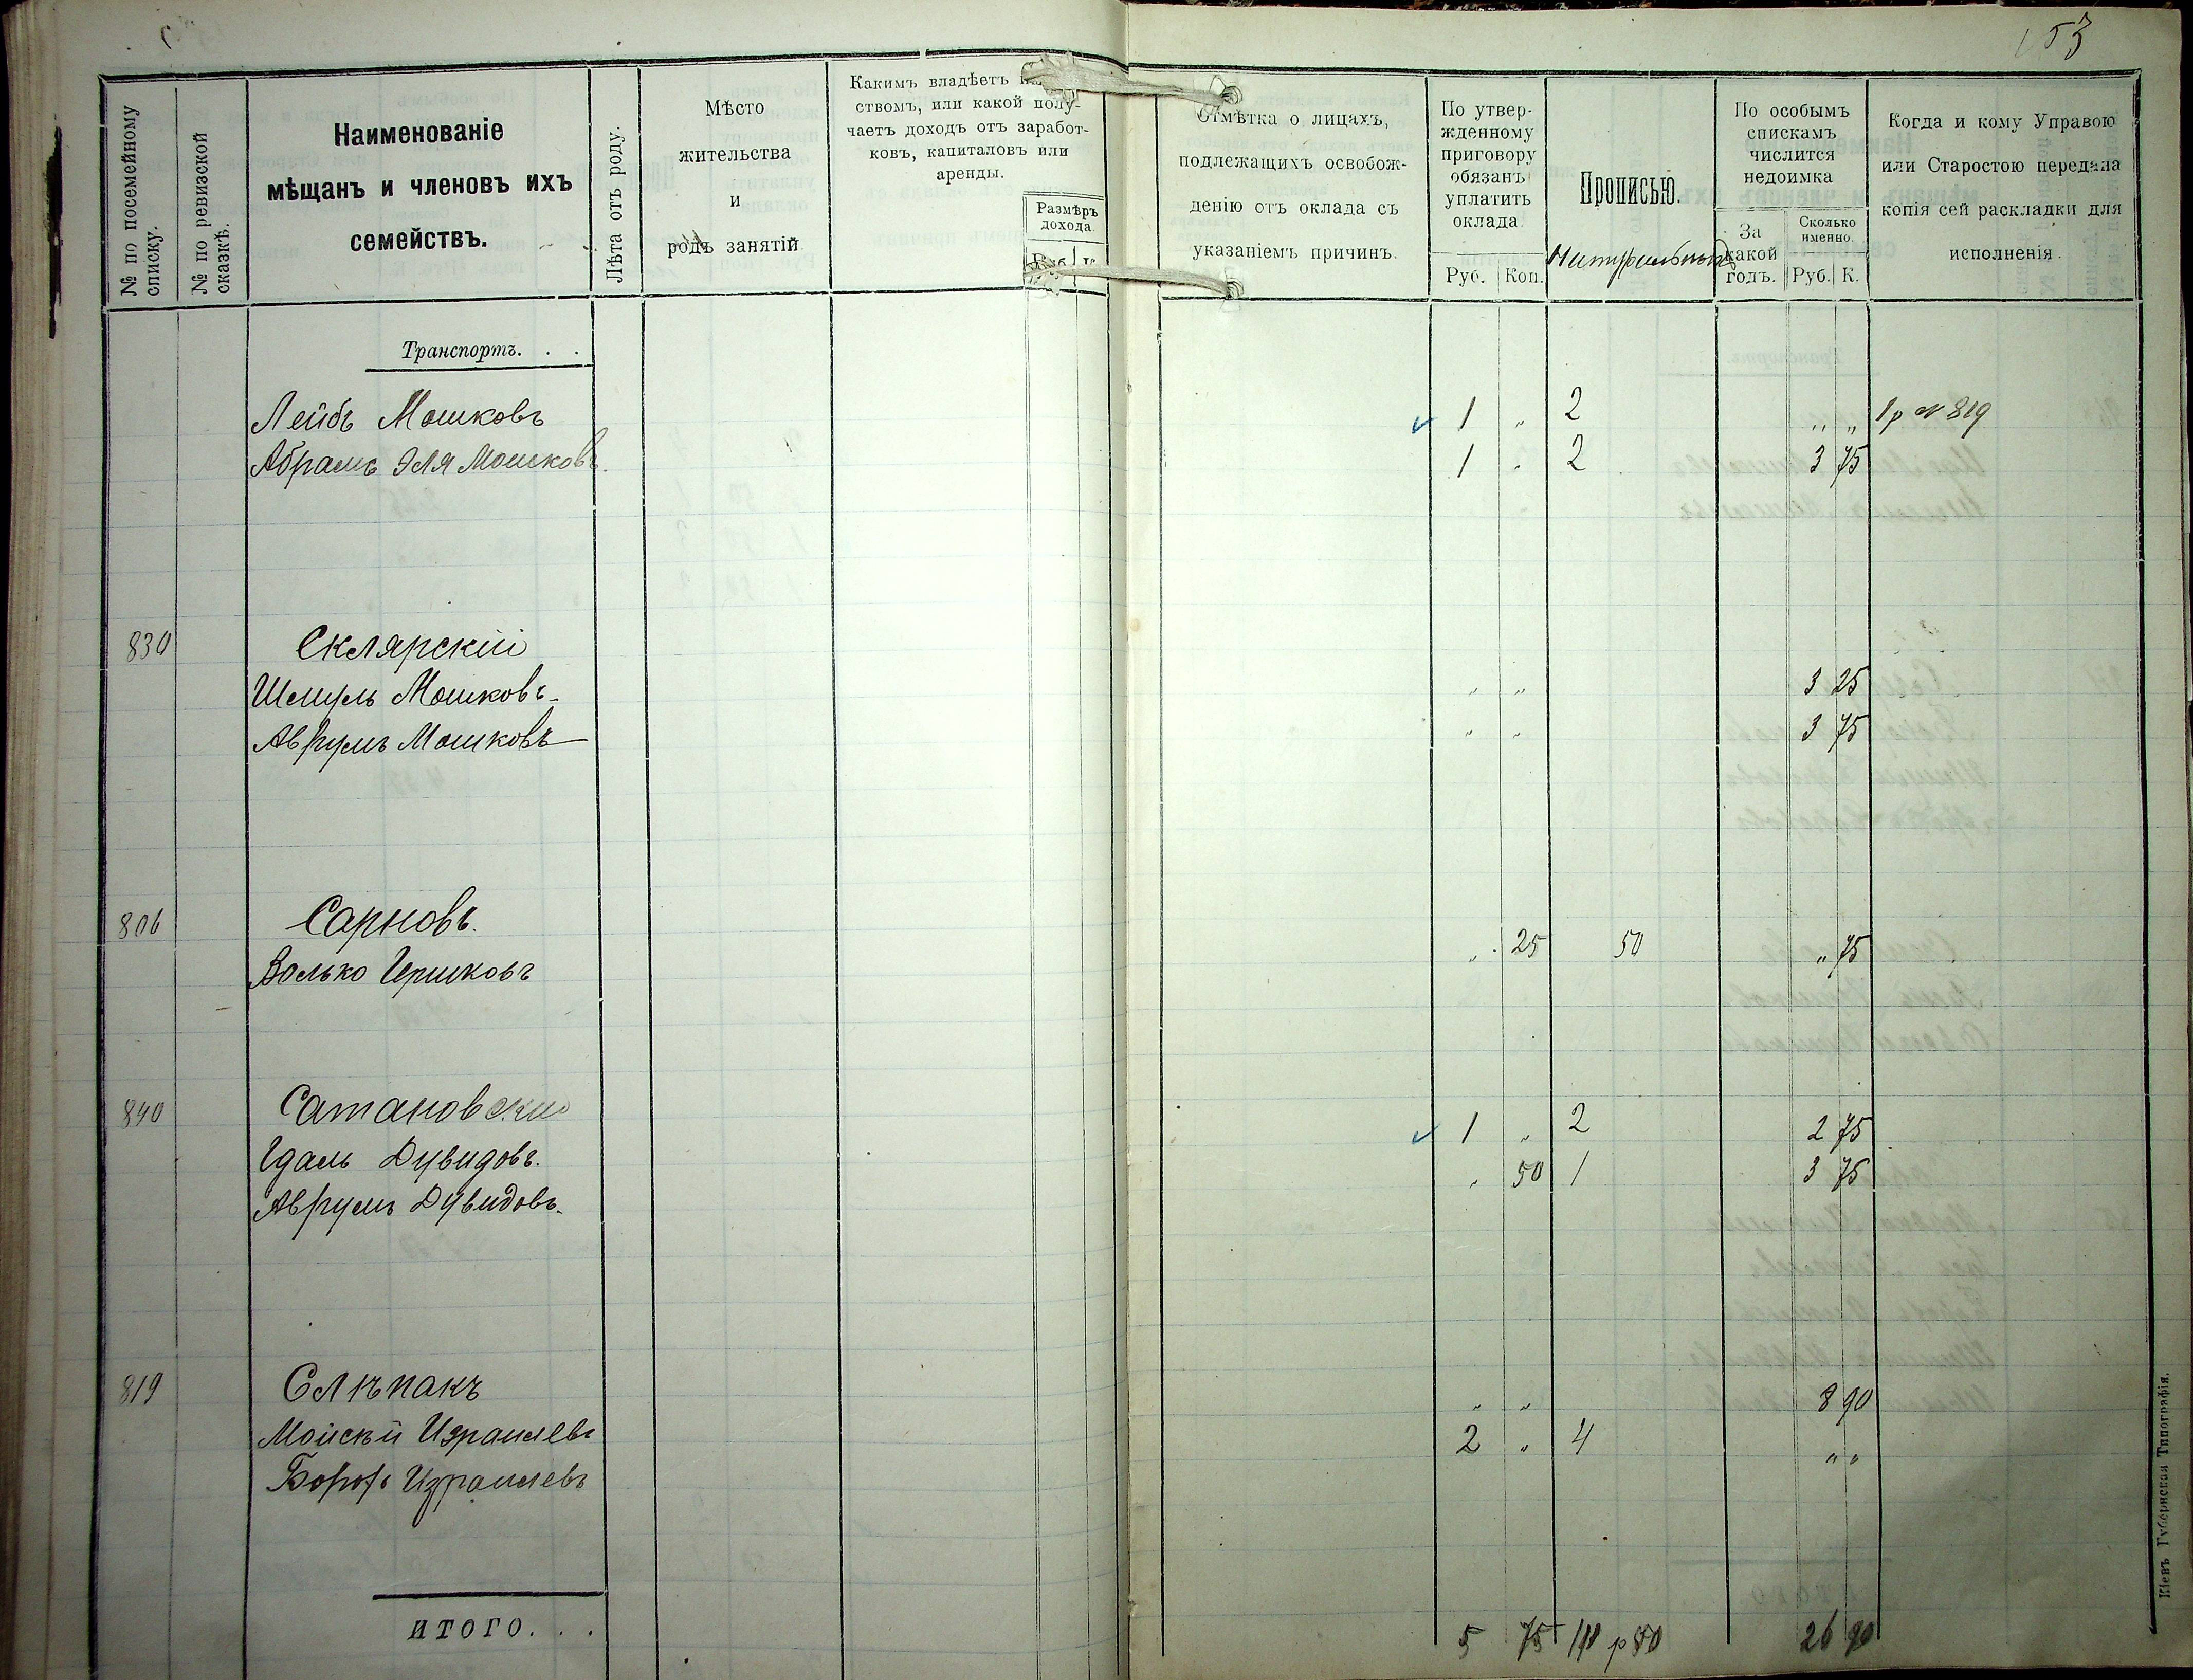 53
№ по посемейному списку.
№ по ревизской сказкѣ.
Наименованіе
мѣщанъ и членовъ ихъ
семействъ.
Лѣта отъ роду.
Мѣсто
жительства
и
родъ занятій
Какимъ владѣетъ
ствомъ, или какой полу-
чаетъ доходъ отъ заработ-
ковъ, капиталовъ или
аренды.
Размѣръ
дохода.
Руб. К.
Отмѣтка о лицахъ,
подлежащихъ освобож-
денію отъ оклада съ
указаніемъ причинъ.
По утвер-
жденному
приговору
обязанъ
уплатить
оклада.
Руб. Коп.
Прописью.
По особымъ
спискамъ
числится
недоимка
За
какой
годъ.
Сколько
именно.
Руб. К.
Когда и кому Управою
или Старостою передана
копія сей раскладки для
исполненія.
Транспортъ. . .
Лейбъ Мошковъ 1 „ 2 „ „ 1р № 819
Абрамъ Эля Мошковъ. 1 „ 2 3 75
830 Склярскій
Шмуль Мошковъ „ „ 3 25
Аврумъ Мошковъ „ „ 3 75
806 Сарновъ.
Волько Гершковъ „ 25 50 „ 75
840 Сатановскій
Гдаль Дувидовъ. 1 „ 2 2 75
Аврумъ Дувидовъ. „ 50 1 3 75
819 Слѣпакъ
Мойсѣй Израилевъ „ „ 8 90
Борохъ Израилевъ 2 „ 4 „ „
ИТОГО. . . 5 75 26 90
Кіевъ Губернская Типографія.